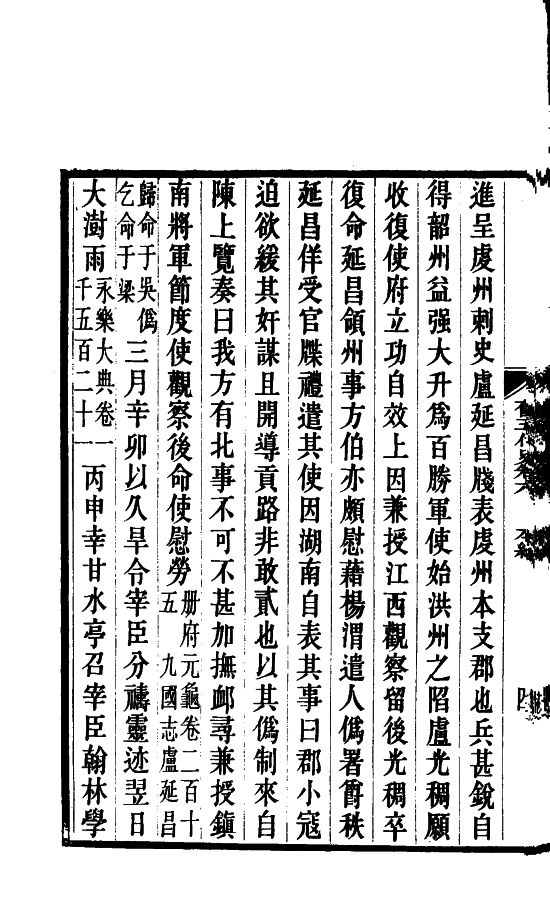 進呈虔州刺史盧延昌牋表虔州本支郡也兵甚銳自
得韶州益强大升爲百勝軍使始洪州之陷盧光稠願
收復使府立功自效上因兼授江西觀察留後光稠卒
復命延昌領州事方伯亦頗慰藉楊渭遣人僞署爵秩
延昌佯受官牒禮遣其使因湖南自表其事曰郡小寇
迫欲緩其奸謀且開導貢路非敢貳也以其僞制來自
陳上覽奏曰我方有北事不可不甚加撫䘏尋兼授鎮
南將軍節度使觀察後命使慰勞册府元龜卷二百十五 九國志盧延昌
歸命于吳僞乞命于梁三月辛卯以久旱令宰臣分禱靈迹翌日
大澍雨永樂大典卷一千五百二十一丙申幸甘水亭召宰臣翰林學